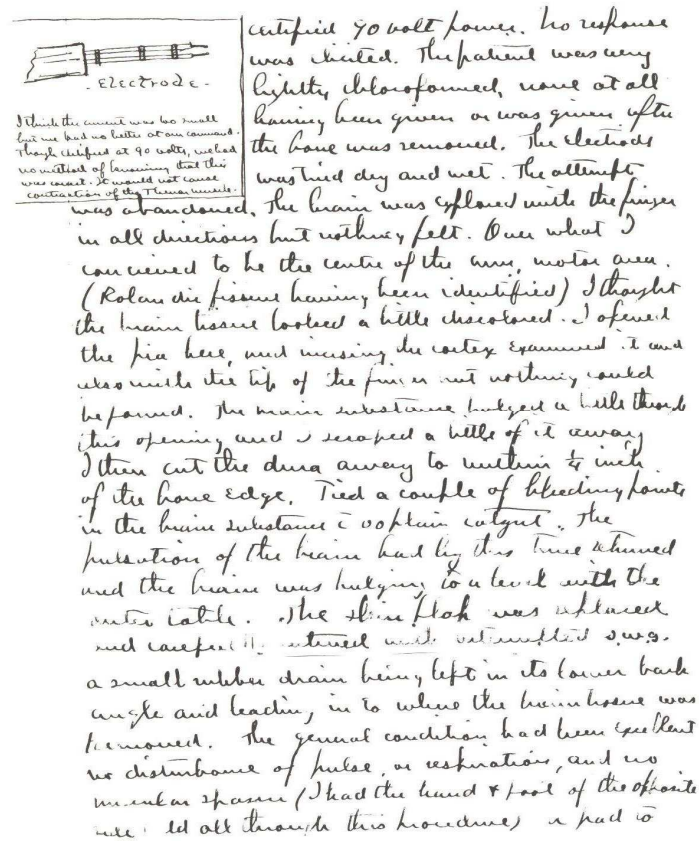 - Electrode -
I think the current was too small
but we had no better at our command.
Though certified at 90 volts, we had
no method of knowing that this
was correct. It would not cause
contraction of the Thenar muscle.
certified 90 volt power. No response
was elicited. The patient was very
lightly chloroformed, none at all
having been given or was given after
the bone was removed. The Electrode
was tried dry and wet. The attempt
was abandoned. The brain was explored with the finger
in all directions but nothing felt. Over what I
conceived to be the centre of the arm, motor area.
(Rolandic fissure having been identified) I thought
the brain tissue looked a little discolored. I opened
the pia here, and incising the cortex examined it and
also with the tip of the finger but nothing could
be found. The brain substance bulged a little through
this opening and I scraped a little of it away
I then cut the dura away to within ¼ inch
of the bone edge. Tied a couple of bleeding points
in the brain substance c̄ 00 plain catgut. The
pulsation of the brain had by this time returned
and the brain was bulging to a level with the
outer table. The skin flap was replaced
and carefully sutured with interrupted s.w.g.
a small rubber drain being left in its lower back
angle and leading in to where the brain tissue was
removed. The general condition had been excellent
no disturbance of pulse, or respiration, and no
muscular spasm (I had the hand & foot of the opposite
all through this procedure) pad to